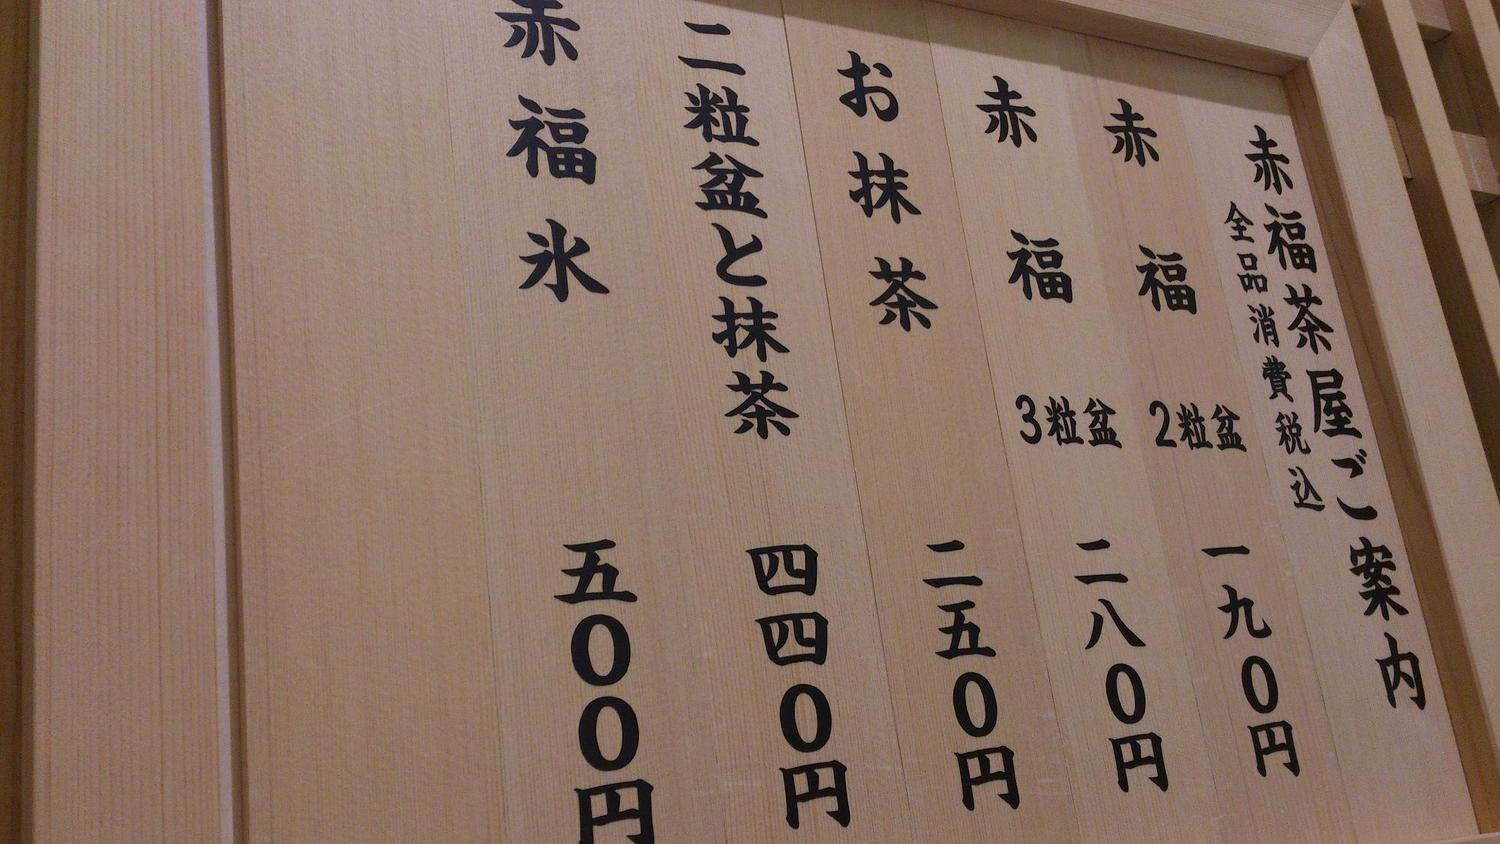 赤福茶屋ご案内
全品消費税込
赤福 2粒盆 一九0円
赤福 3粒盆 二八0円
お抹茶 二五0円
二粒盆と抹茶 四四0円
赤福氷 五00円